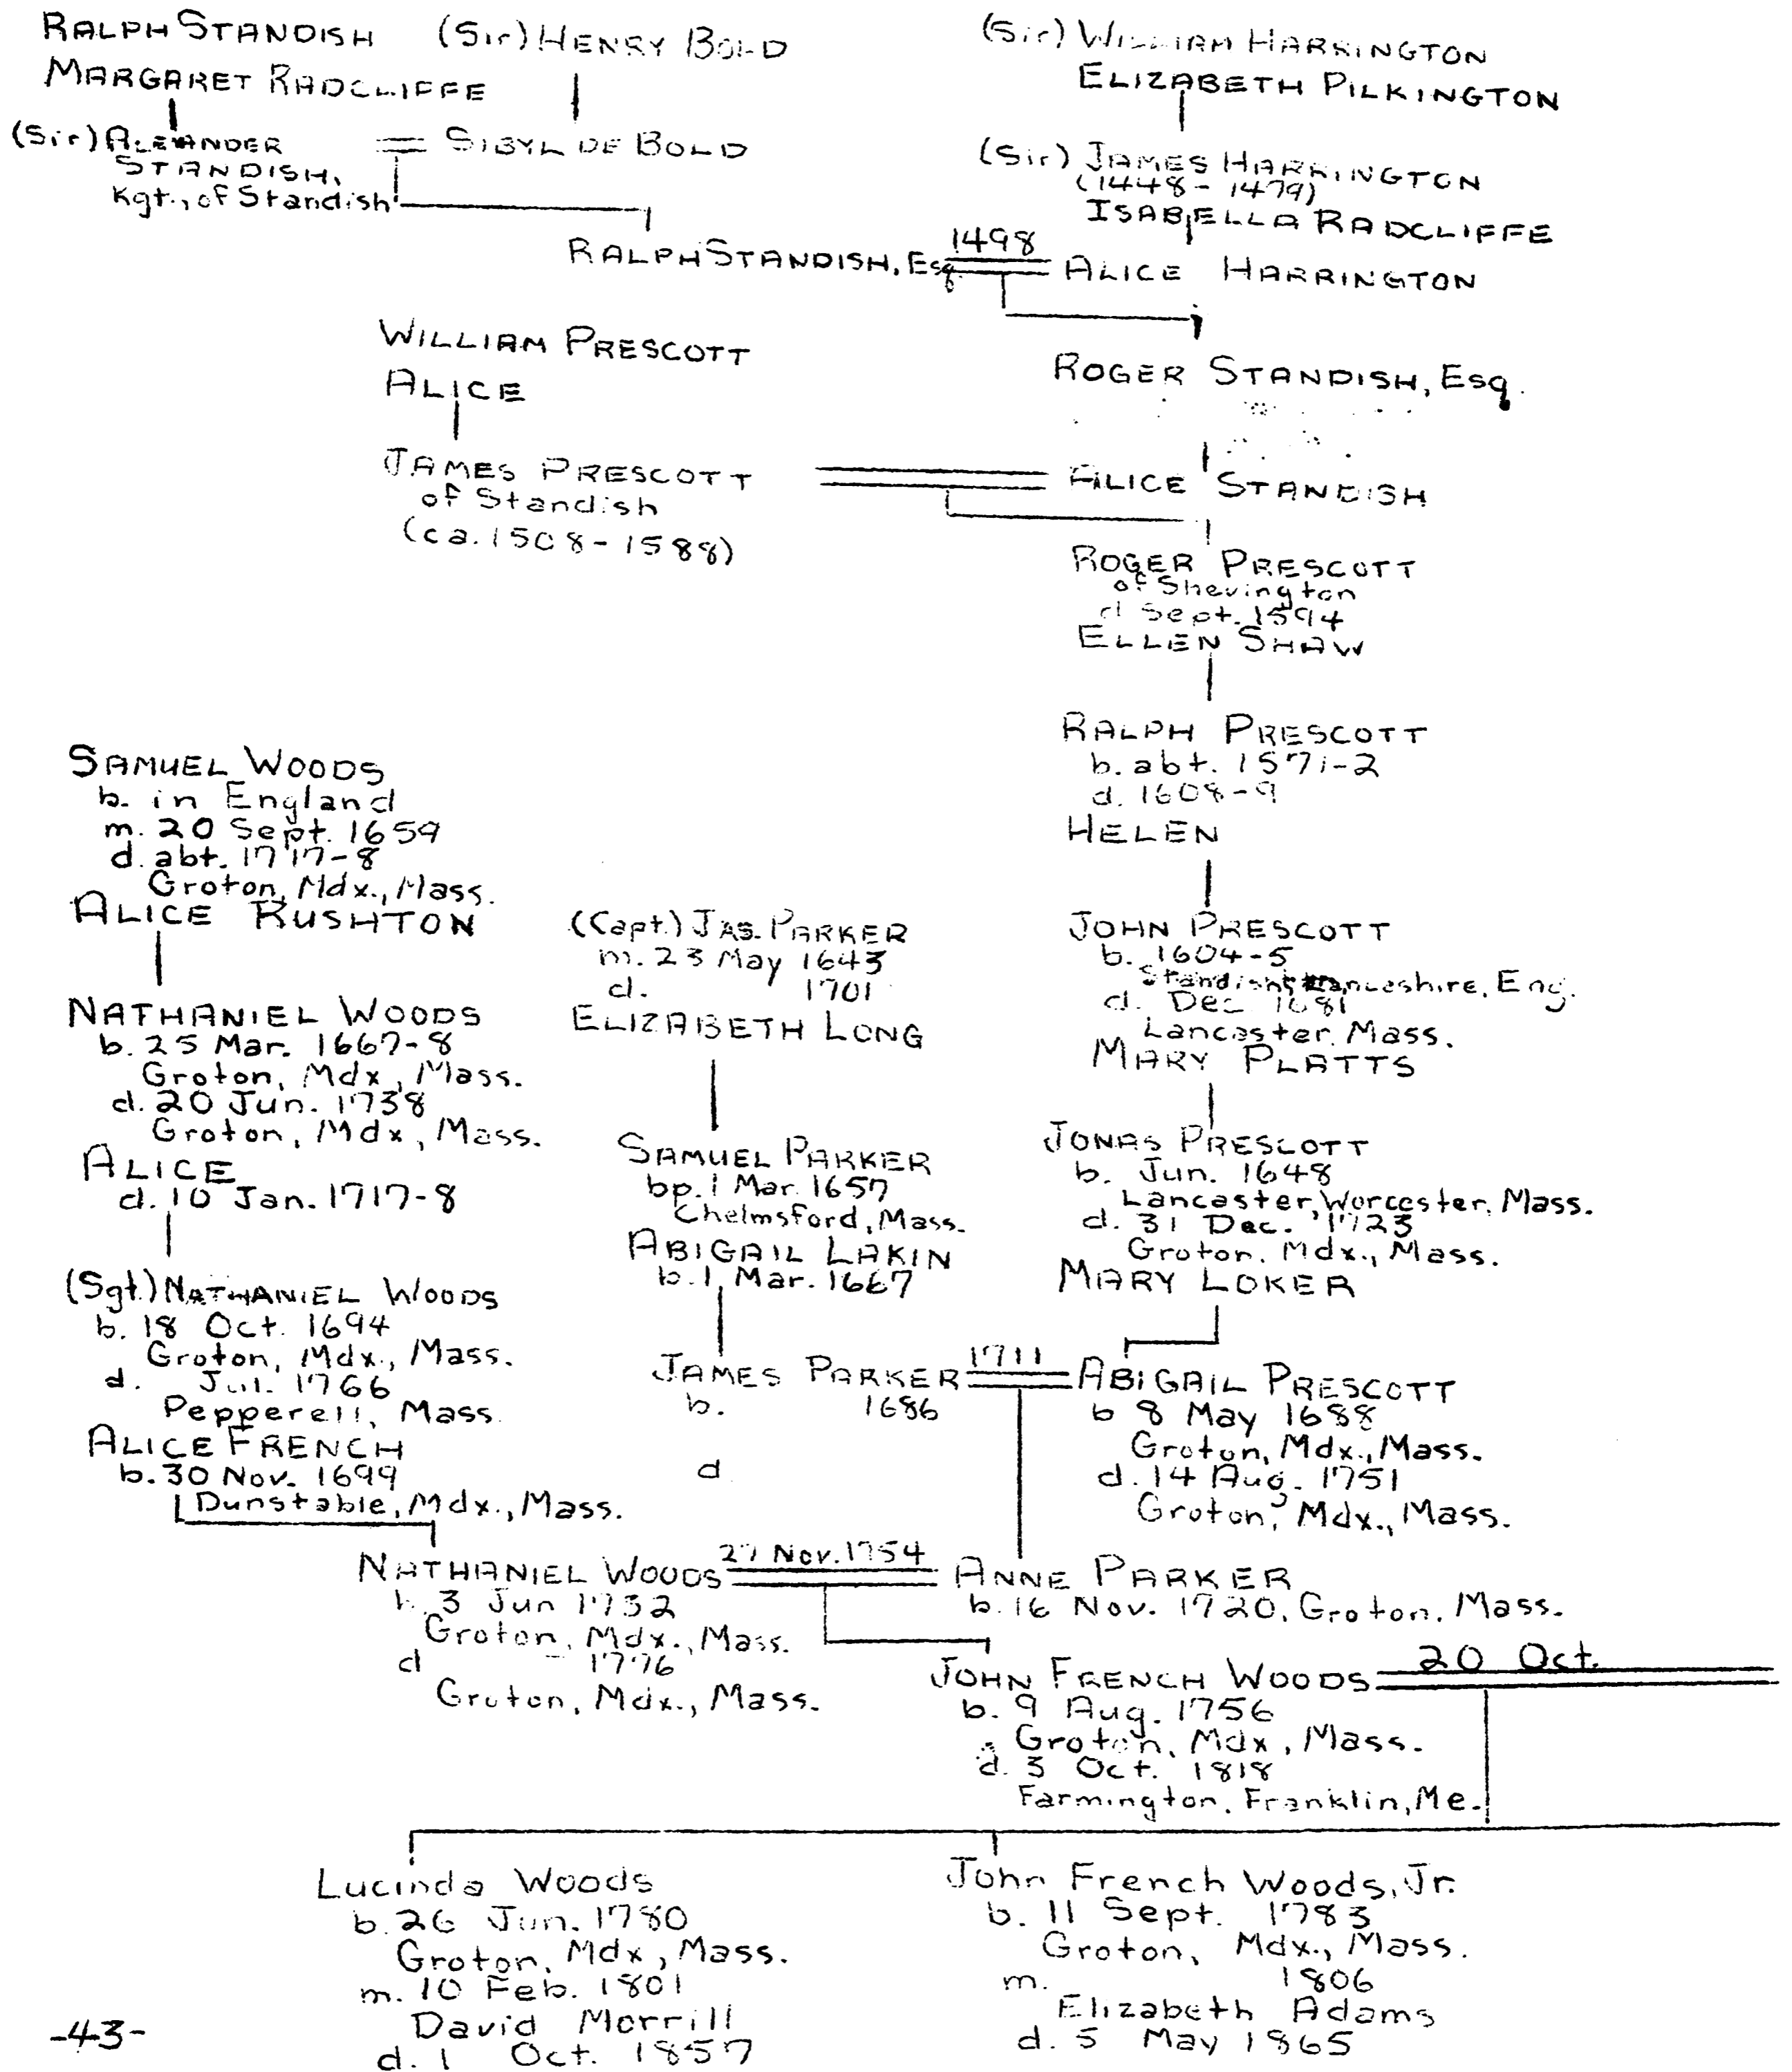 RALPH STANDISH
MARGARET RADCLIFFE
(Sir) HENRY BOLD
(Sir) WILLIAM HARRINGTON
ELIZABETH PILKINGTON
(Sir) ALEXANDER
STANDISH,
Kgt., of Standish
SIBYL DE BOLD
(Sir) JAMES HARRINGTON
(1448-1479)
ISABELLA RADCLIFFE
RALPH STANDISH, Esq.
1498
ALICE HARRINGTON
WILLIAM PRESCOTT
ALICE
ROGER STANDISH, Esq.
JAMES PRESCOTT
of Standish
(ca. 1508-1588)
ALICE STANDISH
ROGER PRESCOTT
of Shevington
d Sept. 1594
ELLEN SHAW
RALPH PRESCOTT
b. abt. 1571-2
d. 1608-9
HELEN
SAMUEL WOODS
b. in England
m. 20 Sept. 1659
d. abt. 1717-8
Groton, Mdx., Mass.
ALICE RUSHTON
(Capt.) JAS. PARKER
m. 23 May 1643
d. 1701
ELIZABETH LONG
JOHN PRESCOTT
b. 1604-5
Standish, Lancashire, Eng.
d. Dec 1681
Lancaster, Mass.
MARY PLATTS
NATHANIEL WOODS
b. 25 Mar. 1667-8
Groton, Mdx, Mass.
d. 20 Jun. 1738
Groton, Mdx, Mass.
ALICE
d. 10 Jan. 1717-8
SAMUEL PARKER
bp. 1 Mar. 1657
Chelmsford, Mass.
ABIGAIL LAKIN
b. 1, Mar. 1667
JONAS PRESCOTT
b. Jun. 1648
Lancaster, Worcester, Mass.
d. 31 Dec. 1723
Groton, Mdx., Mass.
MARY LOKER
(Sgt.) NATHANIEL WOODS
b. 18 Oct. 1694
Groton, Mdx., Mass.
d. Jul. 1766
Pepperell, Mass.
ALICE FRENCH
b. 30 Nov. 1699
Dunstable, Mdx., Mass.
JAMES PARKER
b. 1686
d
1711
ABIGAIL PRESCOTT
b 8 May 1688
Groton, Mdx., Mass.
d. 14 Aug. 1751
Groton, Mdx., Mass.
NATHANIEL WOODS
b. 3 Jun 1732
Groton, Mdx., Mass.
d - 1776
Groton, Mdx., Mass.
27 Nov. 1754
ANNE PARKER
b. 16 Nov. 1720, Groton, Mass.
JOHN FRENCH WOODS
b. 9 Aug. 1756
Groton, Mdx, Mass.
d. 3 Oct. 1818
Farmington, Franklin, Me.
20 Oct.
Lucinda Woods
b. 26 Jun. 1780
Groton, Mdx, Mass.
m. 10 Feb. 1801
David Morrill
d. 1 Oct. 1857
John French Woods, Jr.
b. 11 Sept. 1783
Groton, Mdx., Mass.
m. 1806
Elizabeth Adams
d. 5 May 1865
-43-